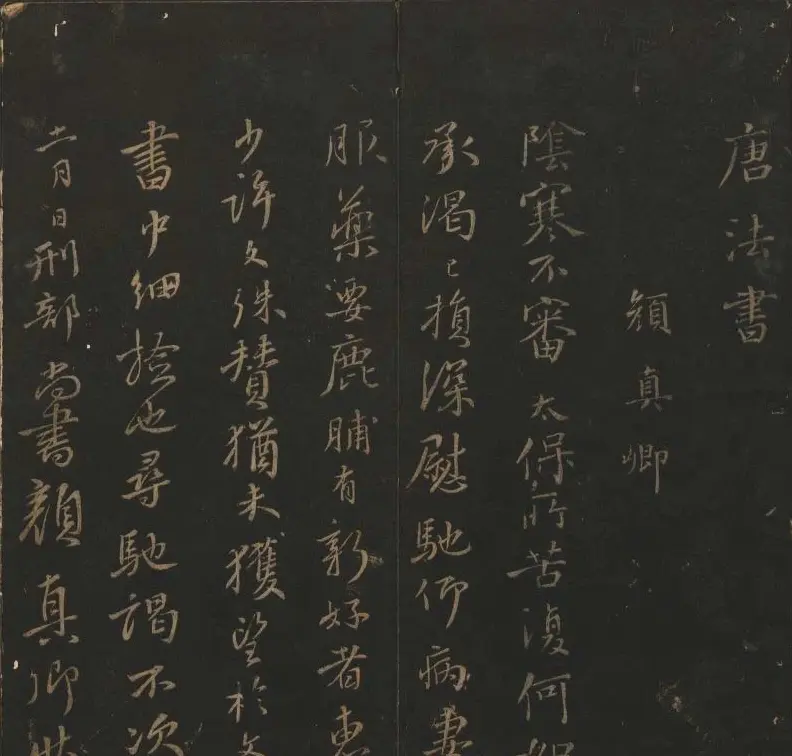 唐法書
顔真卿
陰寒不審太保所苦復何如
承渴已損深慰馳仰病妻
服藥要鹿脯有新好者惠
少許文殊贊猶未獲望於文
書中細撿也尋馳謁不次
十一月日刑部尚書顔真卿狀